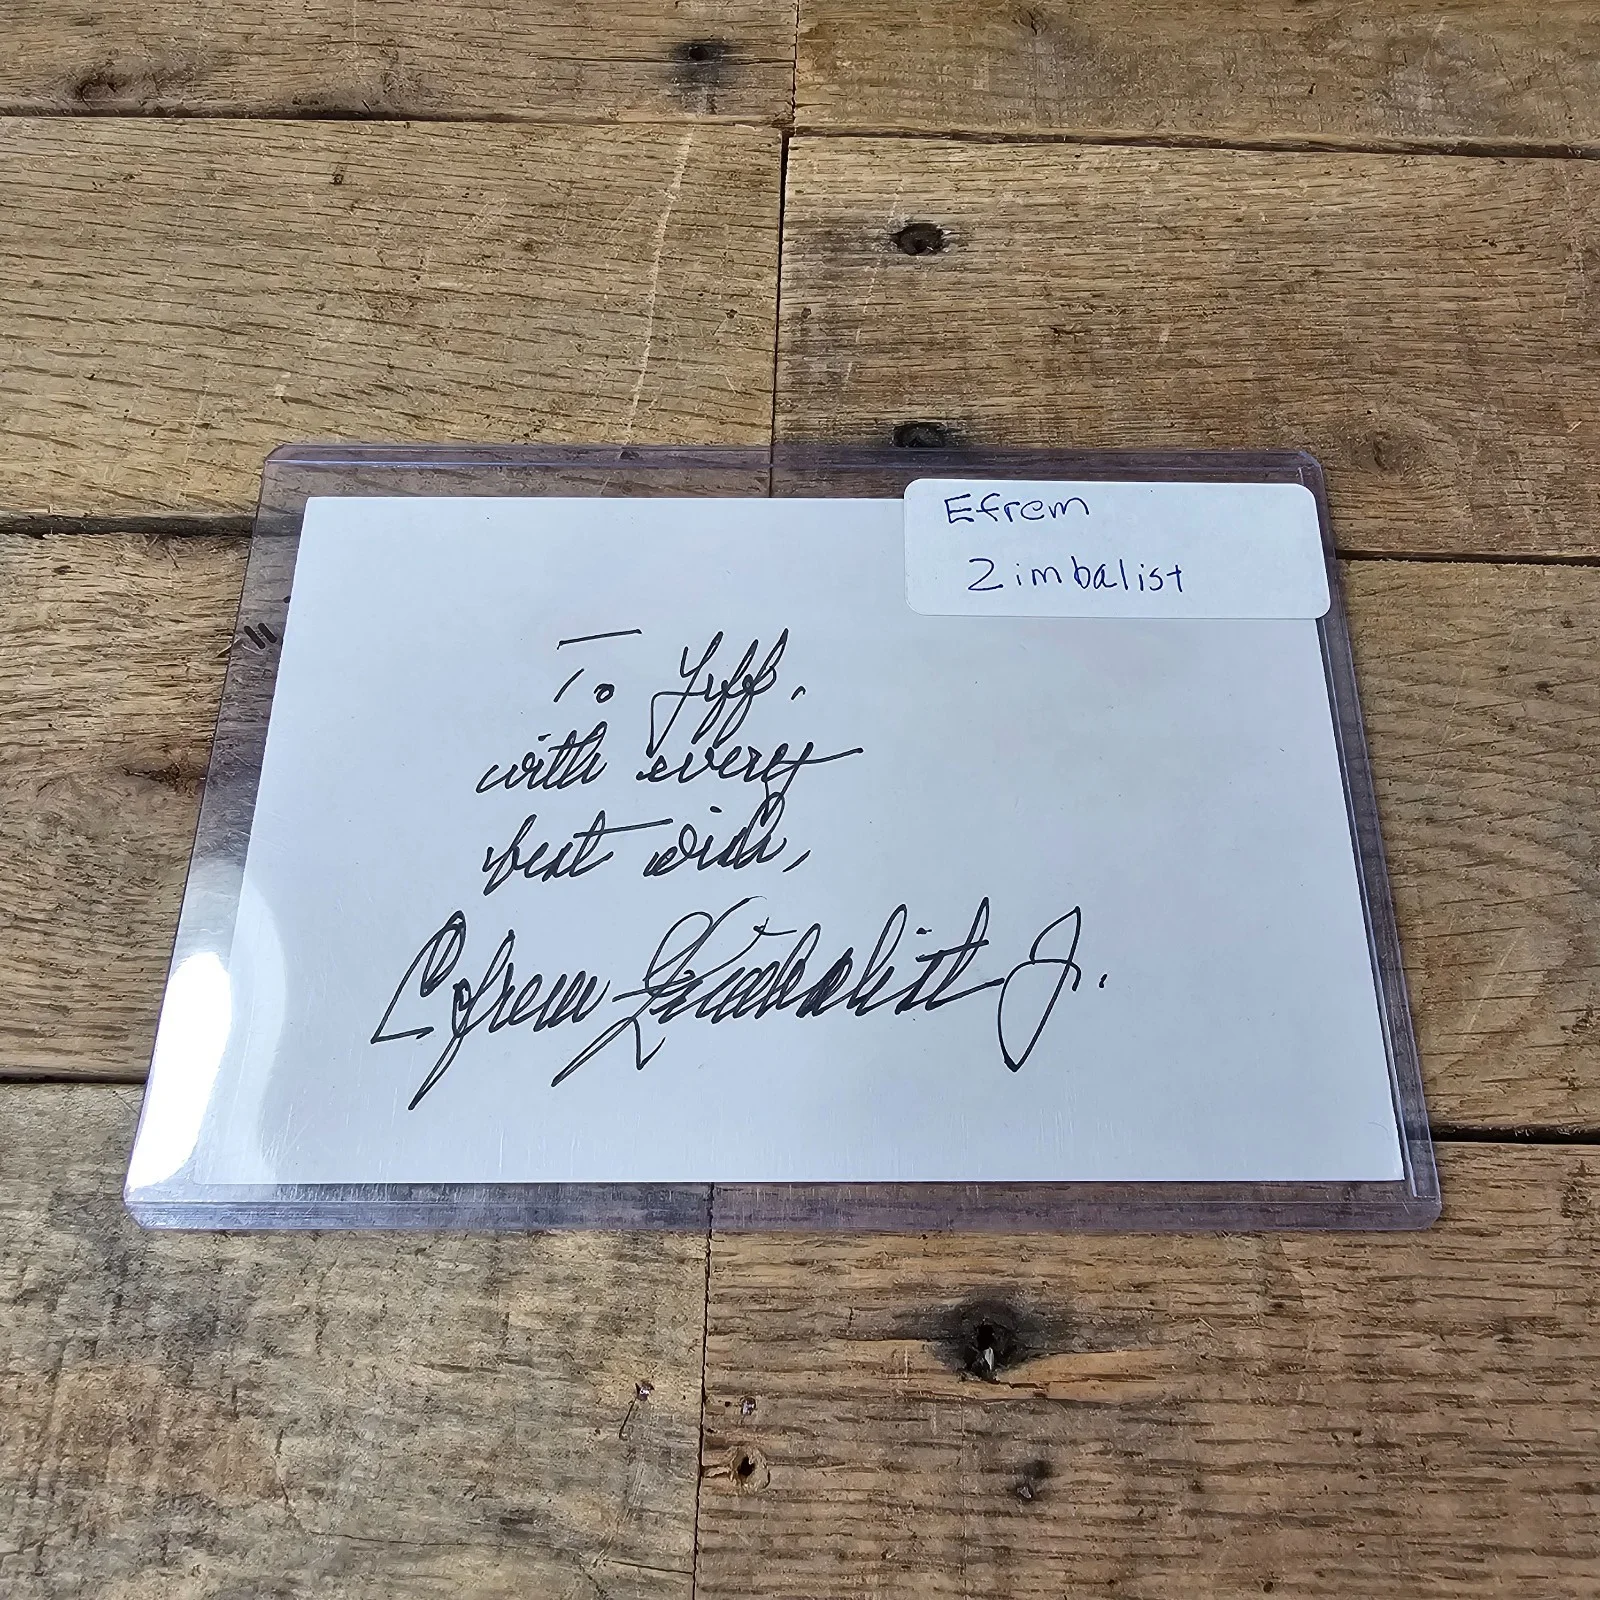 Efrem
Zimbalist
To Jeff,
with every
best wish,
Efrem Zimbalist Jr.